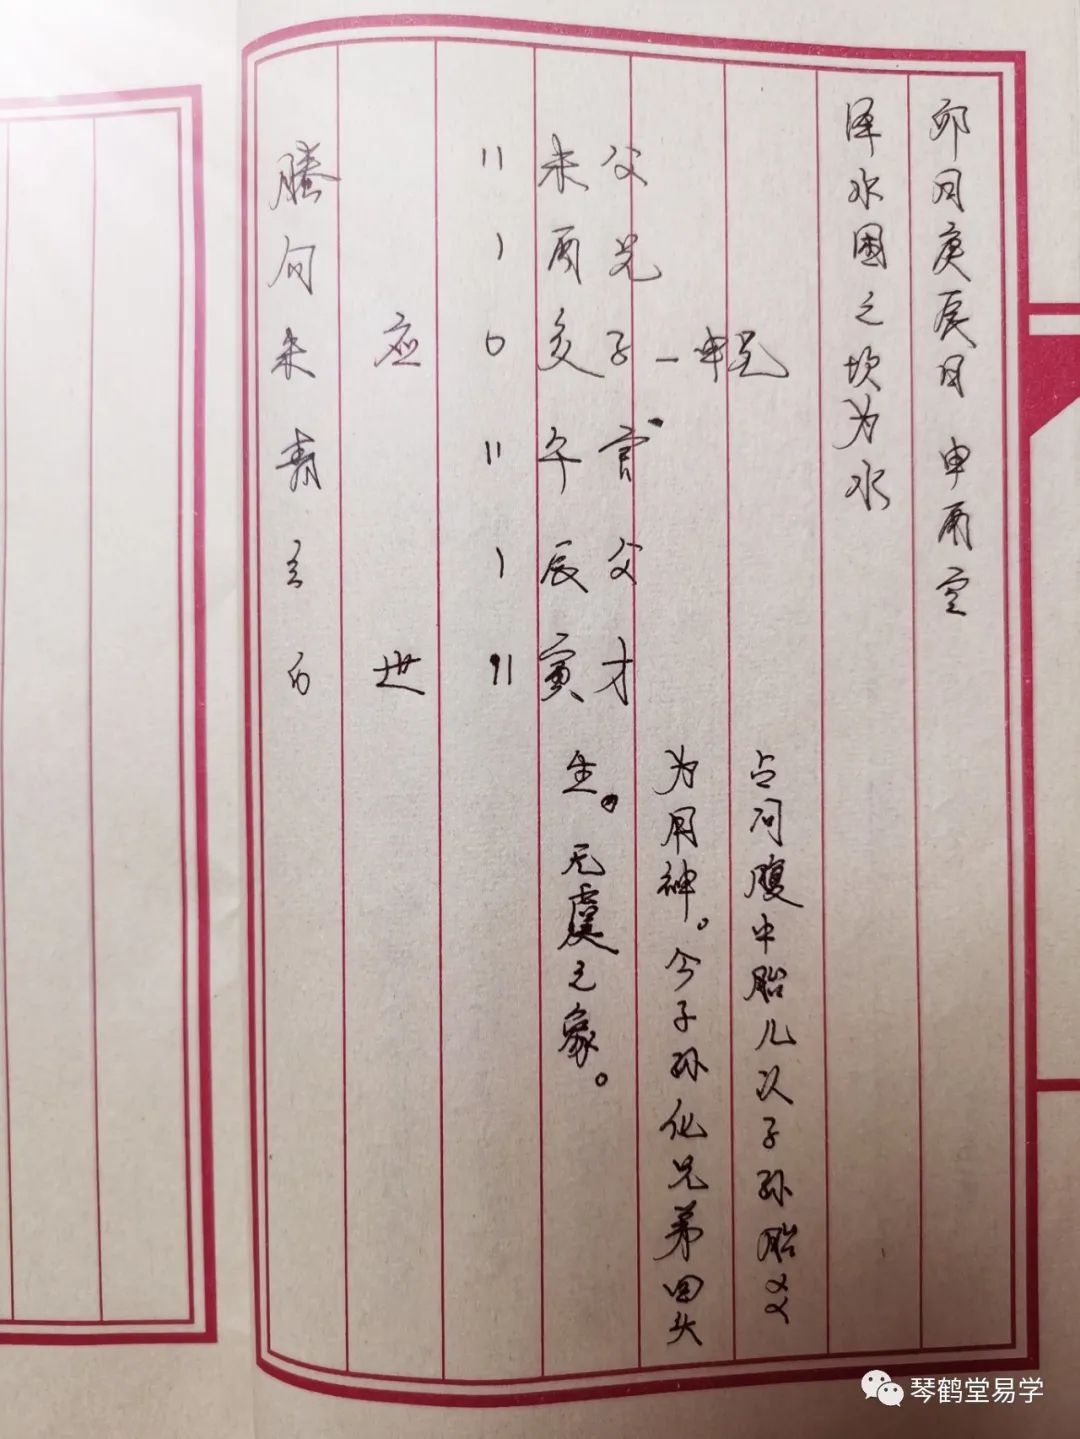 卯月庚辰日 申酉空
泽水困之坎为水
申兄
父兄子官父才
未酉亥午辰寅
〃 ′ 0 〃 ′ 〃
应 世
腾勾朱青玄白
占问腹中胎儿以子孙胎爻
为用神。今子孙化兄弟回头
生。无虞之象。
琴鹤堂易学